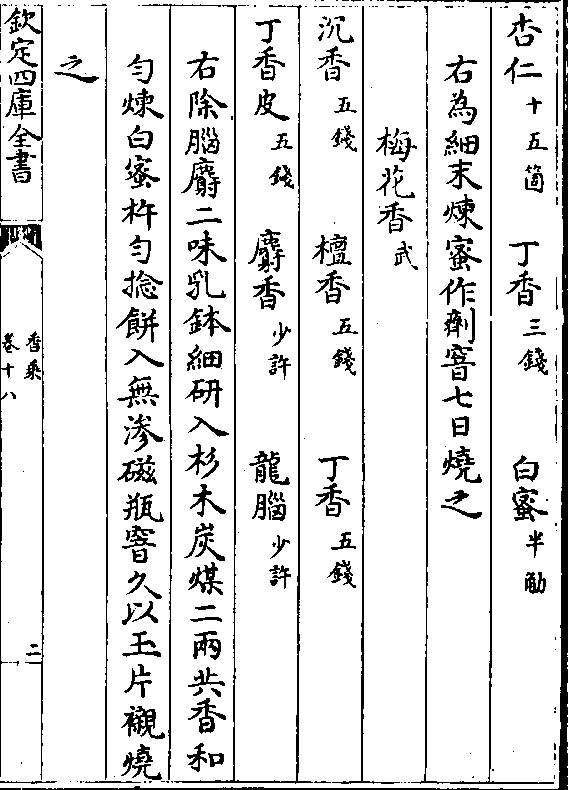 杏仁十五箇　丁香三錢　白蜜半觔
右為細末煉蜜作劑窨七日燒之
梅花香武
沉香五錢　檀香五錢　丁香五錢
丁香皮五錢　麝香少許　龍腦少許
右除腦麝二味乳鉢細研入杉木炭煤二兩共香和
勻煉白蜜杵勻捻餅入無滲磁瓶窨久以玉片襯燒
之
欽定四庫全書
香乗
卷十八
二